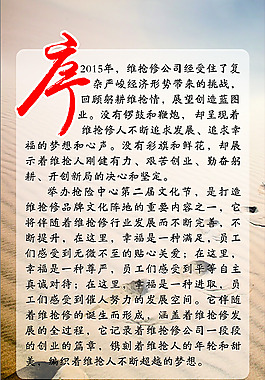 序
2015年，维抢修公司经受住了复
杂严峻经济形势带来的挑战，
回顾躬耕维抢情，展望创造蓝图
业。没有锣鼓和鞭炮，却呈现着
维抢修人不断追求发展、追求幸
福的梦想和心声。没有彩旗和鲜花，却展
示着维抢人刚健有力、艰苦创业、勤奋躬
耕、开创新局的决心和坚定。
举办抢险中心第二届文化节，是打造
维抢修品牌文化阵地的重要内容之一，它
将伴随着维抢修行业发展而不断完善，不
断提升，在这里，幸福是一种满足，员工
们感受到无微不至的贴心关爱；在这里，
幸福是一种尊严，员工们感受到平等自主
真诚对待；在这里，幸福是一种进取，员工
们感受到催人努力的发展空间。它伴随
着维抢修的诞生而形成，涵盖着维抢修发
展的全过程，它记录着维抢修公司一段段
的创业的篇章，镌刻着维抢人的年轮和甜
美，编织着维抢人不断超越的梦想。